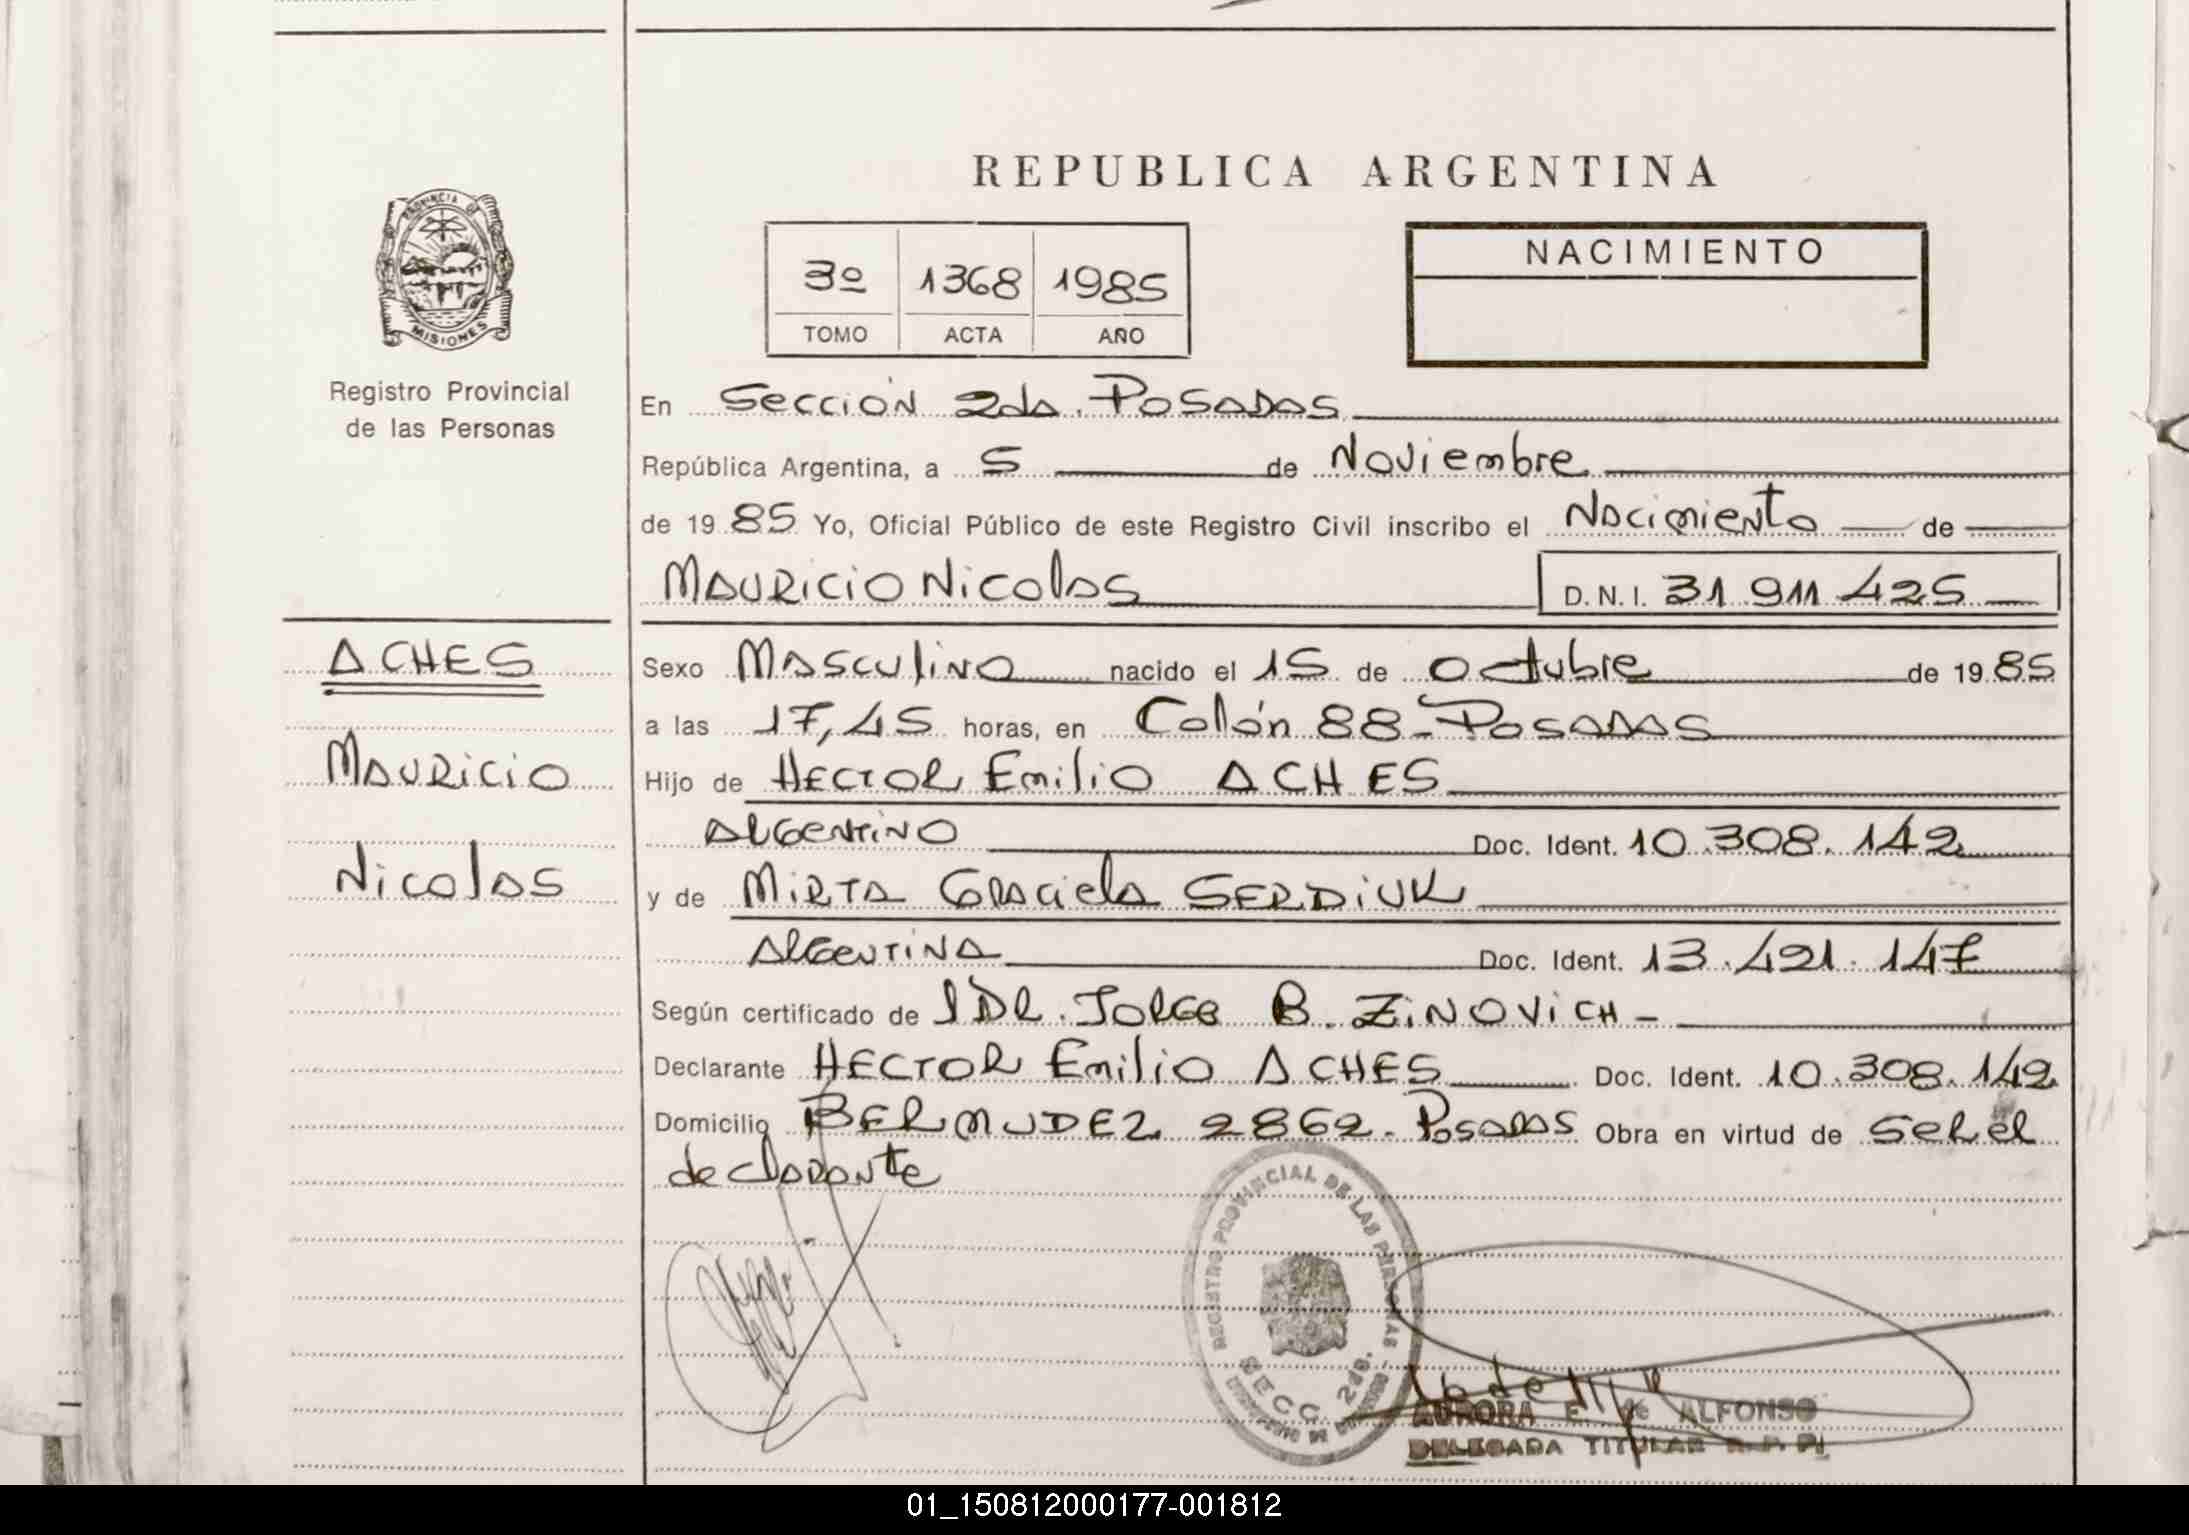 REPUBLICA ARGENTINA
PROVINCIA DE
MISIONES
Registro Provincial
de las Personas
3º 1368 1985
TOMO ACTA AÑO
NACIMIENTO
En Sección 2da. POSADAS
República Argentina, a 5 de Noviembre
de 1985 Yo, Oficial Público de este Registro Civil inscribo el Nacimiento de
MAURICIO Nicolas D.N.I. 31.911.425
ACHES
Mauricio
Nicolas
Sexo Masculino nacido el 15 de Octubre de 1985
a las 17,45 horas, en Colón 88-POSADAS
Hijo de HECTOR Emilio ACHES
ARGENTINO Doc. Ident. 10.308.142
y de MIRTA Graciela SERDIUK
ARGENTINA Doc. Ident. 13.421.147
Según certificado de DR. JORGE B. ZINOVICH -
Declarante HECTOR Emilio ACHES Doc. Ident. 10.308.142
Domicilio BERMUDEZ 2862- Posadas Obra en virtud de ser el
declarante
REGISTRO PROVINCIAL DE LAS PERSONAS
SECC. 2da.
AURORA E. de ALFONSO
DELEGADA TITULAR R. P. P.
01_150812000177-001812